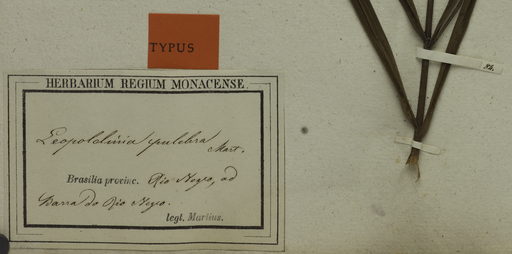 TYPUS
HERBARIUM REGIUM MONACENSE.
Leopoldinia pulchra
Mart.
Brasilia provinc. Rio Negro, ad
Barra do Rio Negro.
legt. Martius.